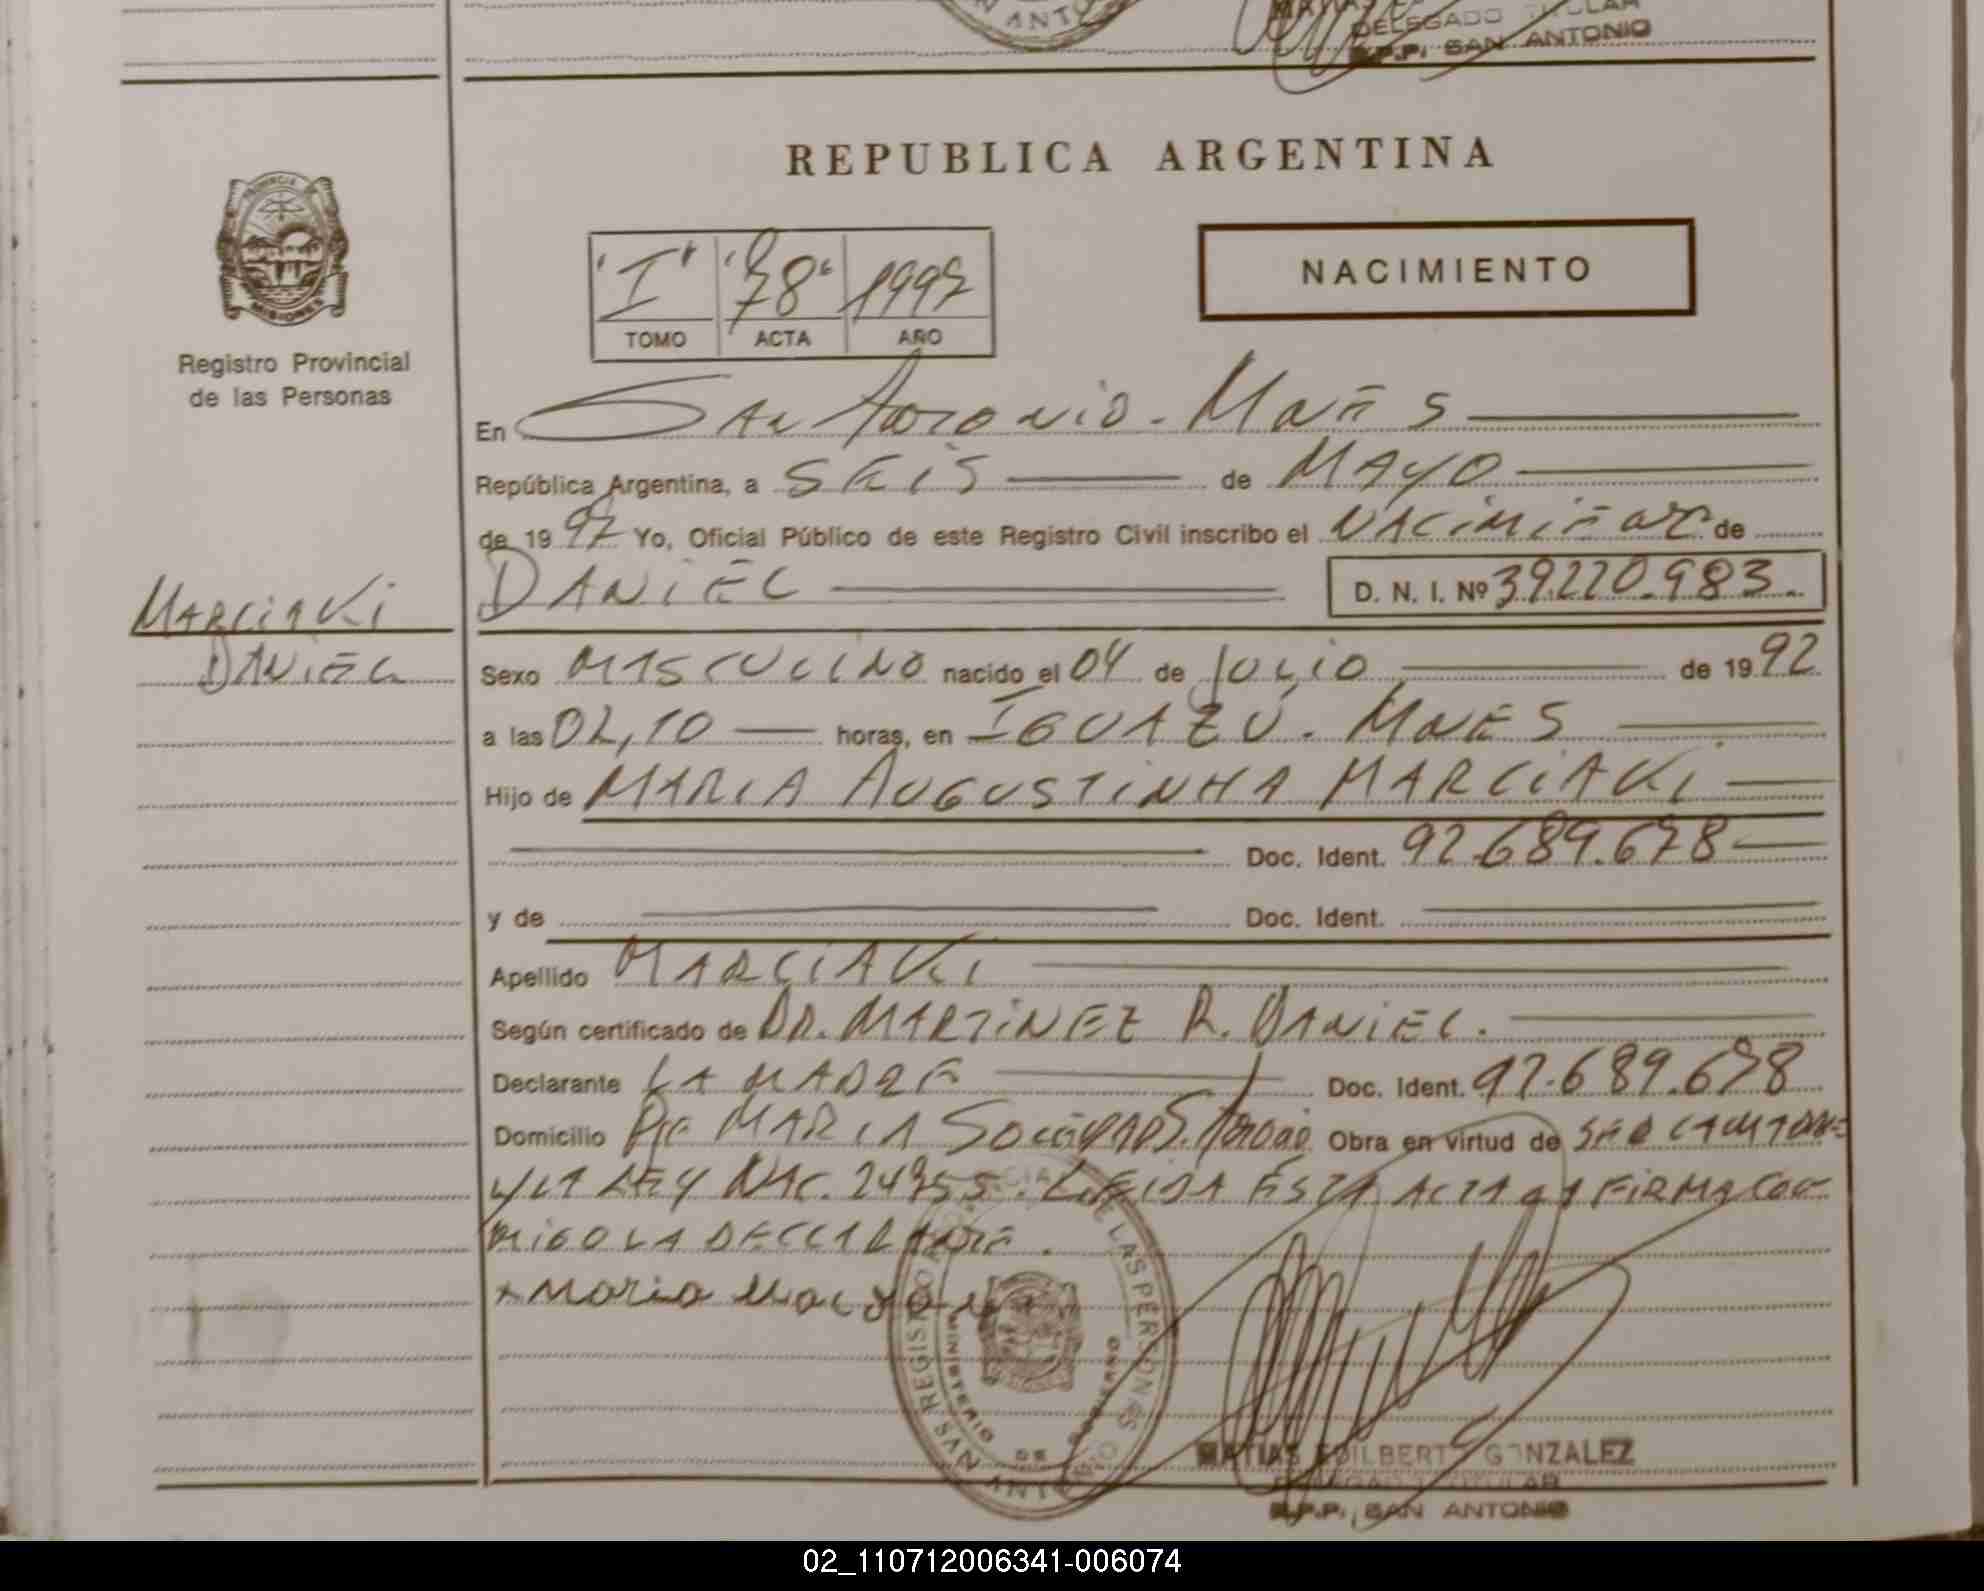 DELEGADO TITULAR
R.P.P. SAN ANTONIO
REPUBLICA ARGENTINA
"I" "78" 1997
TOMO ACTA AÑO
NACIMIENTO
PROVINCIA
MISIONES
Registro Provincial
de las Personas
En San Antonio - Mnes
República Argentina, a SEIS de MAYO
de 1997 Yo, Oficial Público de este Registro Civil inscribo el NACIMIENTO de
DANIEL D. N. I. Nº 39.220.983.
MARCIAKI
DANIEL
Sexo MASCULINO nacido el 04 de JULIO de 1992
a las 02,10 horas, en IGUAZÚ. MNES
Hijo de MARIA AUGUSTINHA MARCIAKI
Doc. Ident. 92.689.678
y de Doc. Ident.
Apellido MARCIAKI
Según certificado de DR. MARTINEZ R. DANIEL.
Declarante LA MADRE Doc. Ident. 92.689.678
Domicilio MARIA SOLEDAD S. Antonio Obra en virtud de
Y LA LEY NAC. 24755. LEIDA ESTA ACTA LA FIRMA CON
MIGO LA DECLARANTE.
x Maria
REGISTRO PROVINCIAL DE LAS PERSONAS
MINISTERIO DE GOBIERNO
SAN ANTONIO
MATIAS EDILBERTO GONZALEZ
DELEGADO TITULAR
R.P.P. SAN ANTONIO
02_110712006341-006074